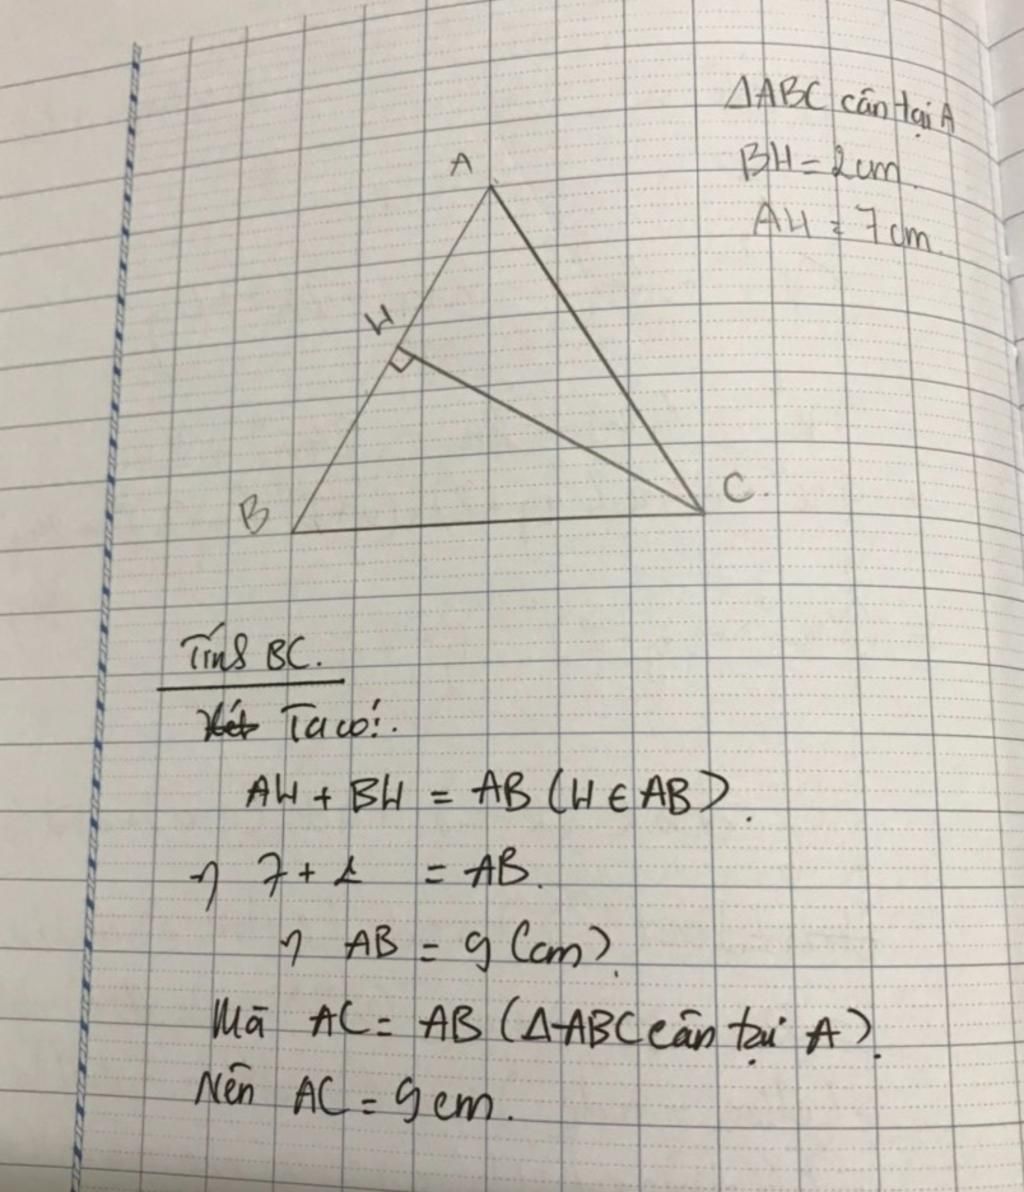 ΔABC cân tại A
BH = 2cm.
AH = 7cm.
A
H
B
C.
Tính BC.
Xét Ta có:.
AH + BH = AB (H ∈ AB).
7 + 2 = AB.
AB = 9 (cm).
Mà AC = AB (ΔABC cân tại A).
Nên AC = 9cm.